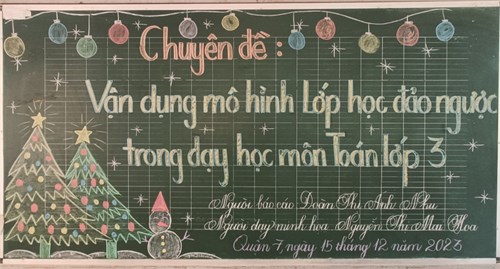 Chuyên đề :
Vận dụng mô hình Lớp học đảo ngược
trong dạy học môn Toán lớp 3
Người báo cáo Đoàn Thị Anh Như
Người dạy minh họa Nguyễn Thị Mai Hoa
Quận 7, ngày 15 tháng 12 năm 2023